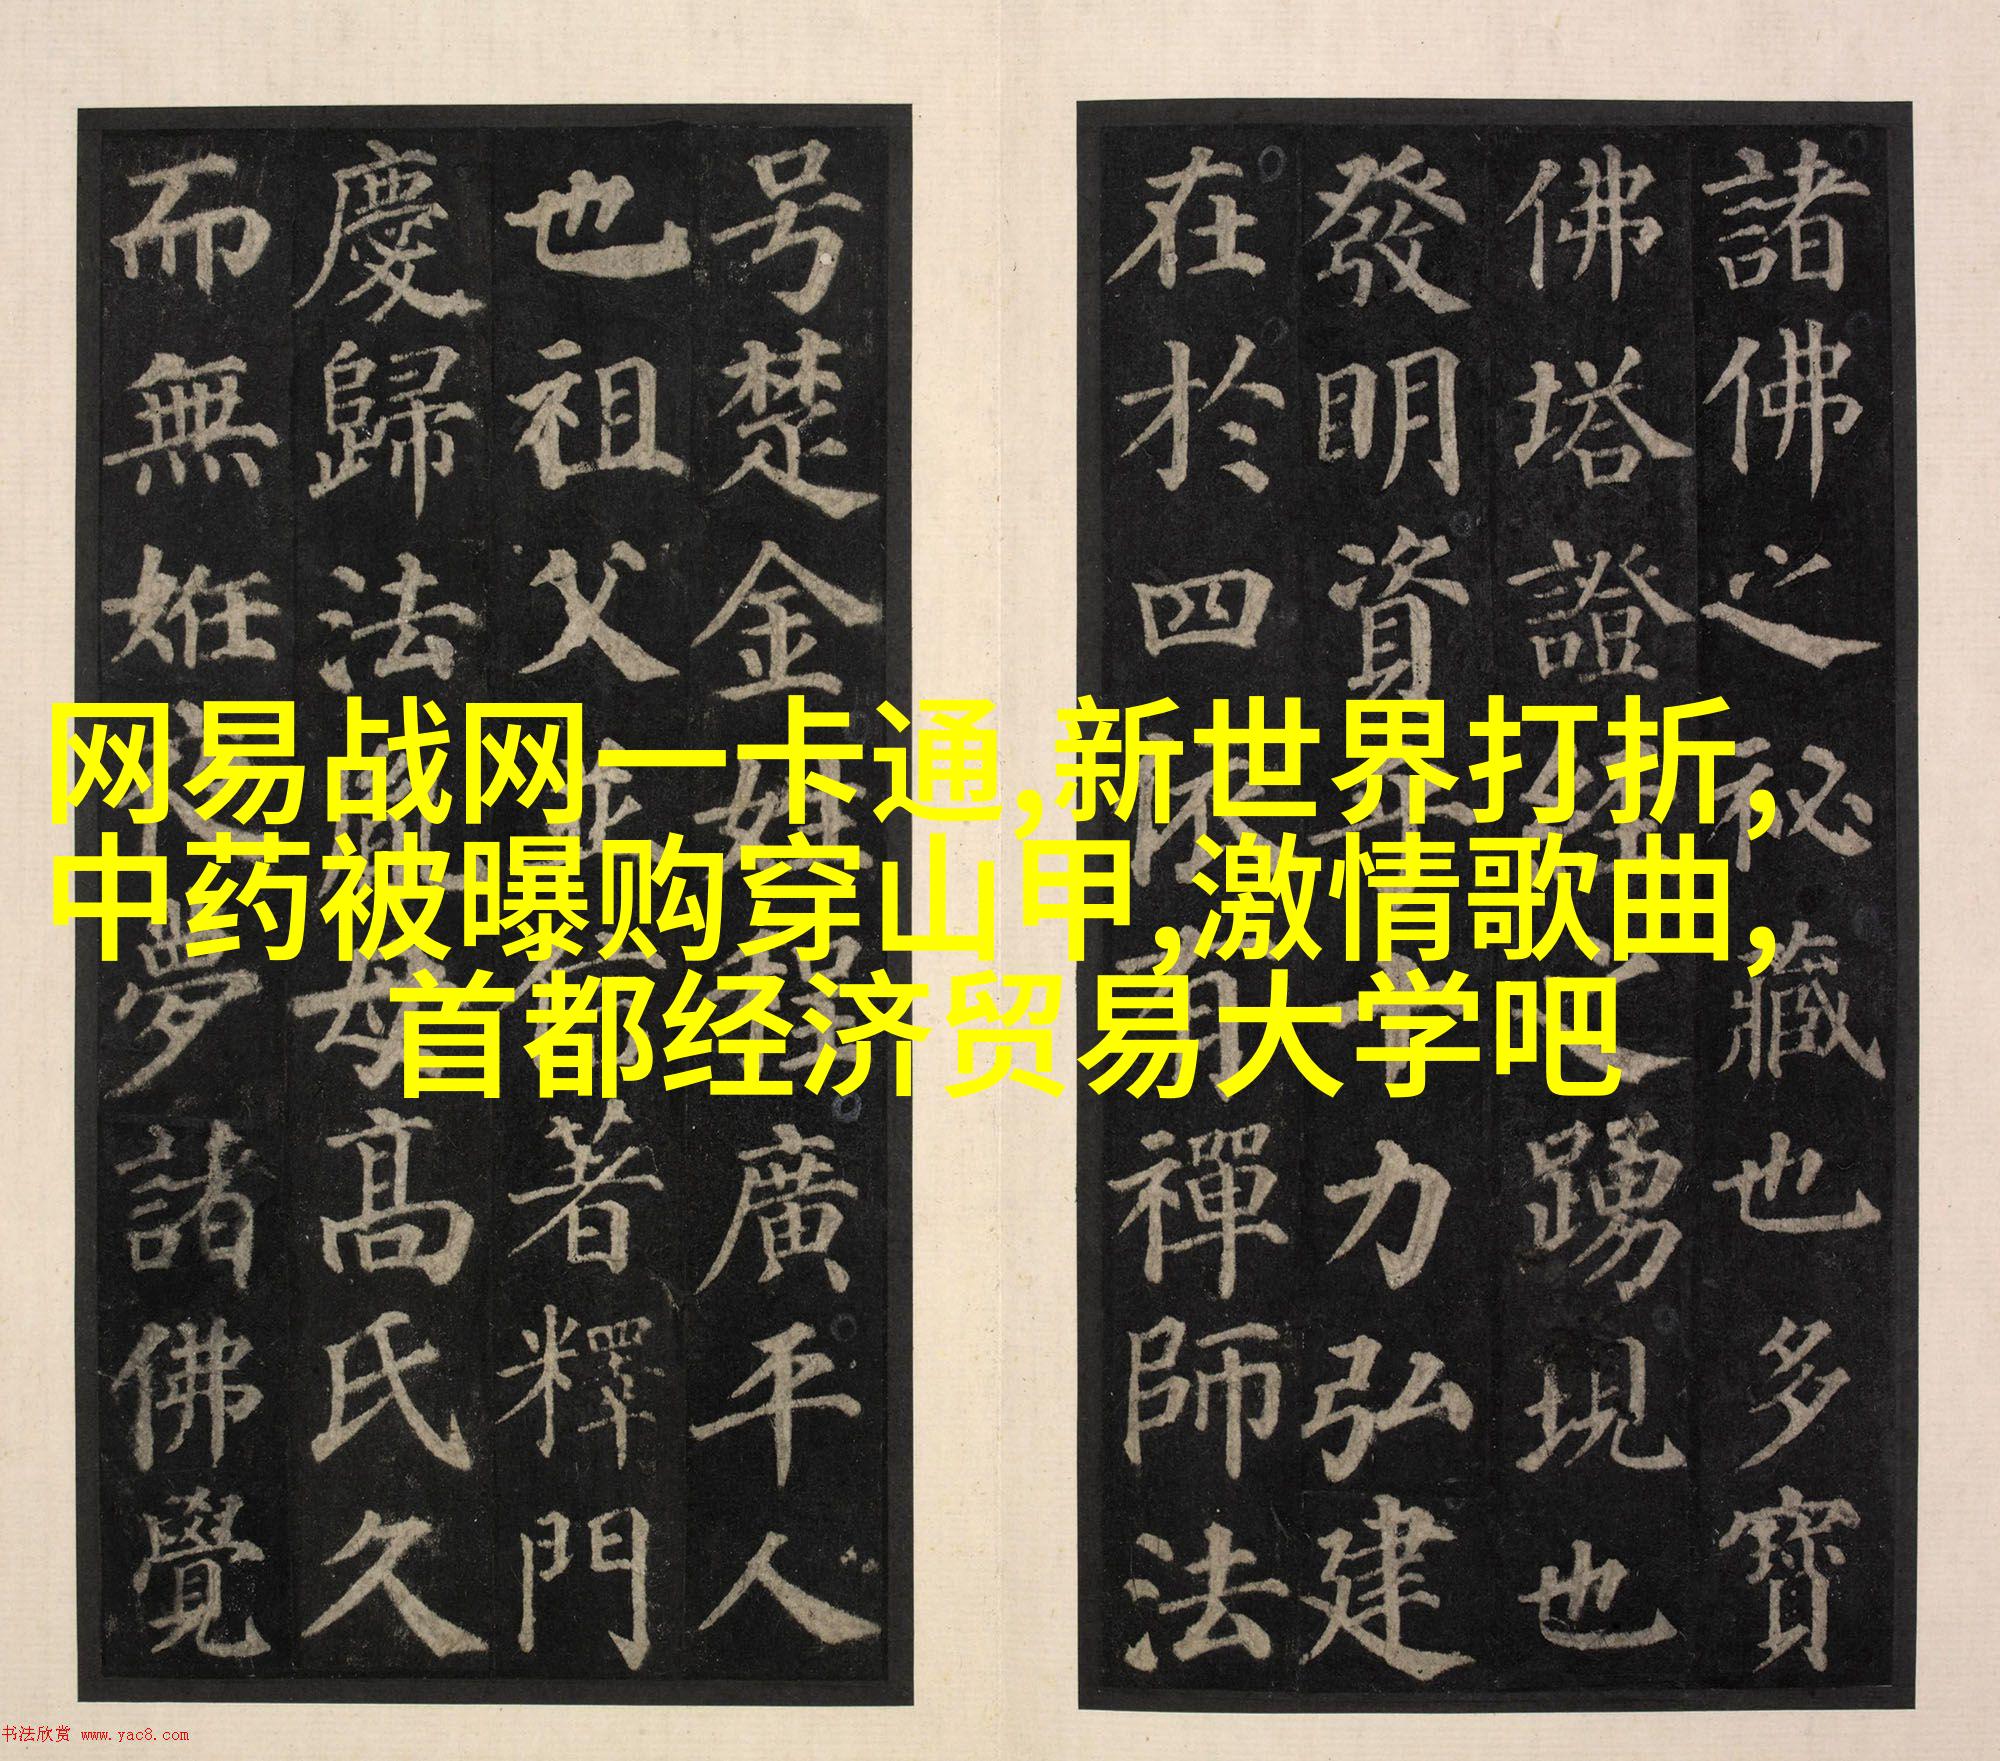 諸佛之祕藏也多寶
佛塔證經之踴現也
發明資乎十力弘建
在於四依有禪師法
号楚金姓程廣平人
也祖父並信著釋門
慶歸法胤母高氏久
而無姙夜夢諸佛覺
网易战网一卡通,新世界打折,
中药被曝购穿山甲,激情歌曲,
首都经济贸易大学吧
书法欣赏 www.yac8.com